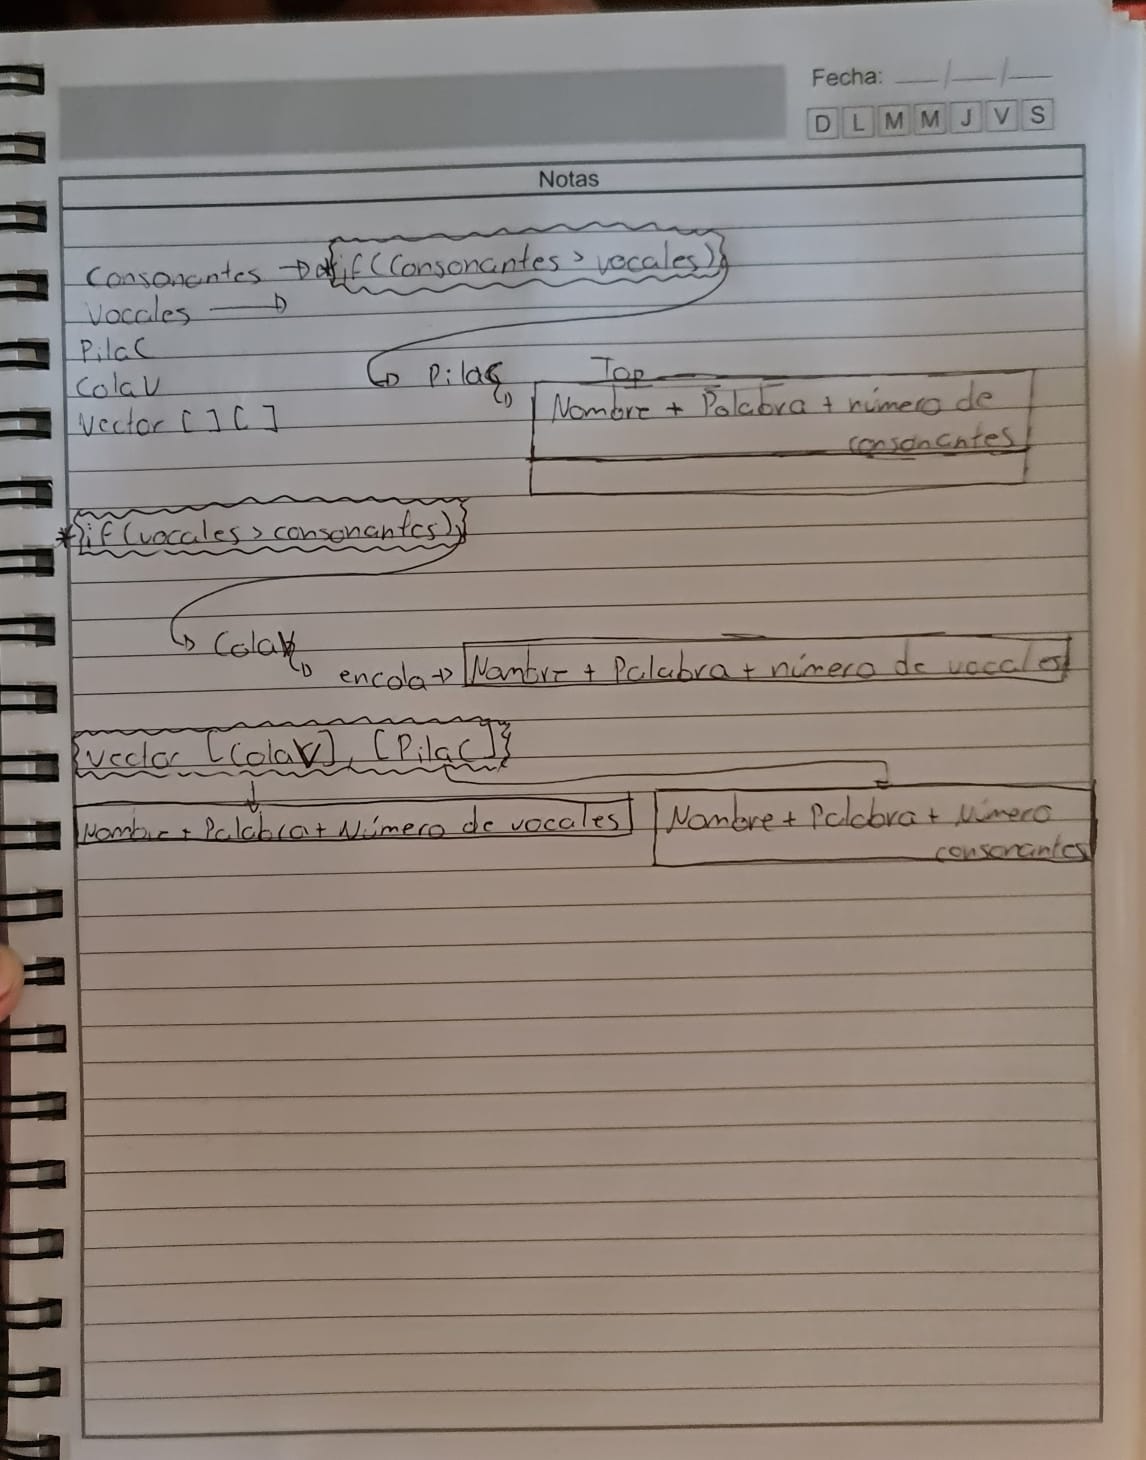 Fecha: __/__/__
D L M M J V S
Notas
Consonantes → if(Consonantes > vocales)}
Vocales →
PilaC
ColaV
Vector [ ] [ ]
PilaC Top
Nombre + Palabra + número de
consonantes
*{if(vocales > consonantes)}
ColaV
encola → Nombre + Palabra + número de vocales
{Vector [ColaV], [PilaC]}
Nombre + Palabra + Número de vocales
Nombre + Palabra + Número
consonantes